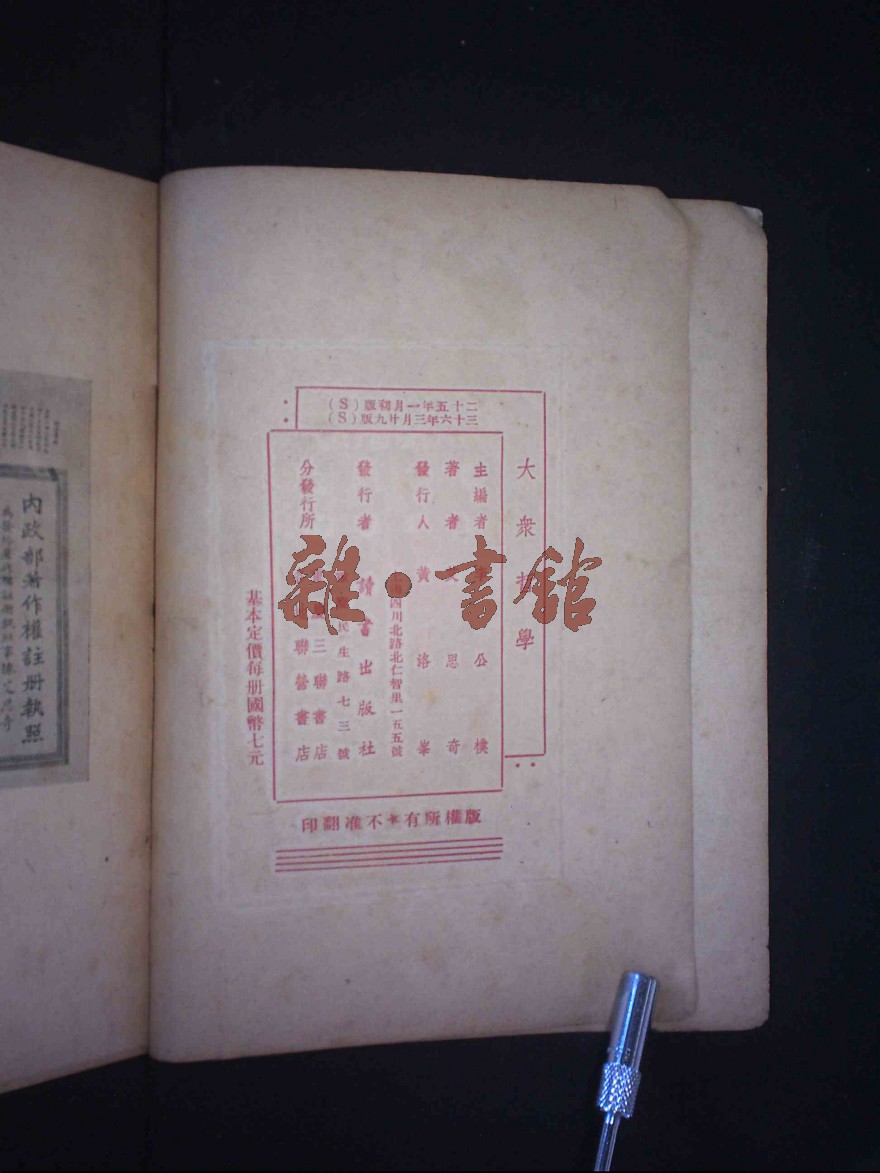 大衆哲學
二十五年一月初版(S)
三十六年三月廿九版(S)
主編者 公樸
著者 思奇
發行人 黃洛峯
四川北路北仁智里一五五號
發行者 讀書出版社
民生路七三號
分發行所 三聯書店
聯營書店
基本定價每册國幣七元
版權所有★不准翻印
內政部著作權註册執照
雜·書館